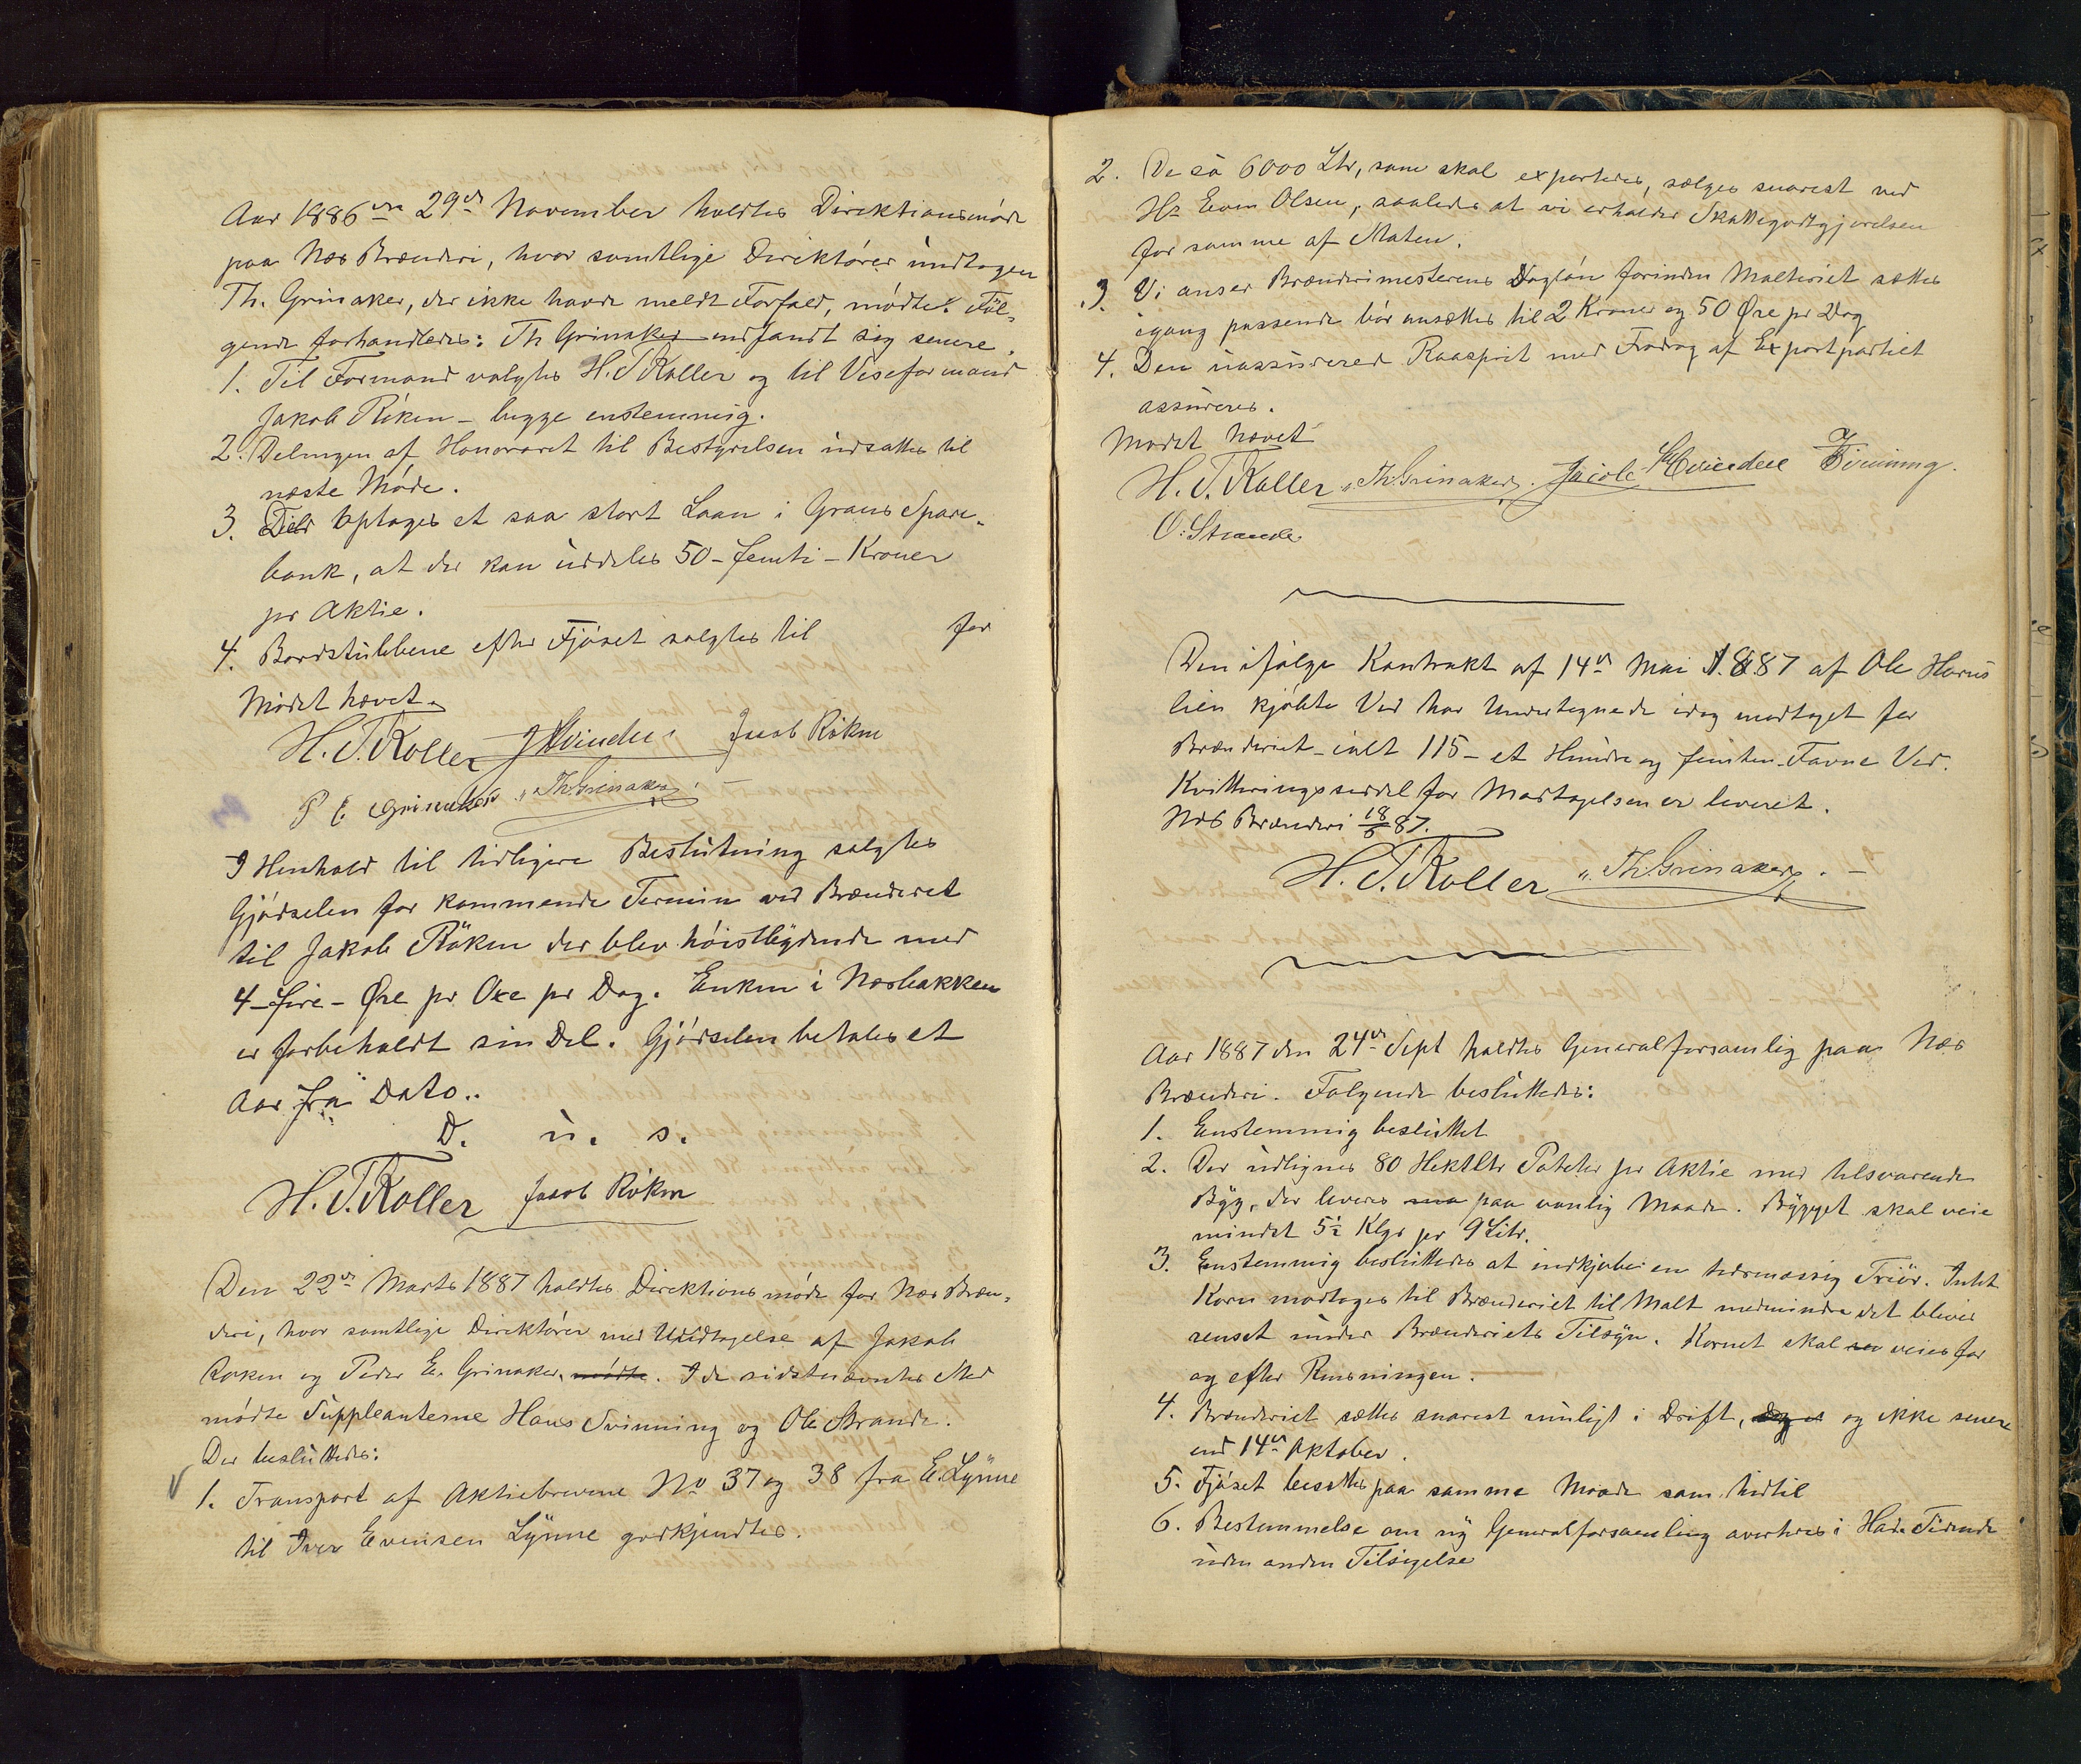 Aar 1886 den 29de November holdtes Direktionsmøde
paa Næs Brænderi, hvor samtlige Direktører undtagen
Th. Grinaker, der ikke havde meldt Forfald, mødte. Føl-
gende forhandledes: Th Grinaker indfandt sig senere.
1. Til Formand valgtes H. T Koller og til Viseformand
Jakob Røken - begge enstemmig.
2. Delingen af Honoraret til Bestyrelsen udsattes til
næste Møde.
3. Der optages et saa stort Laan i Grans Spare-
bank, at der kan uddeles 50 - femti - Kroner
pr Aktie.
4. Bordstubbene efter Fjøset solgtes til for
Mødet hævet.
H. T. Koller J Hvinden Jacob Røken
P E Grinaker Th. Grinaker
I Henhold til tidligere Beslutning solgtes
Gjødselen for kommende Termin ved Brænderiet
til Jakob Røken der blev høistbydende med
4 - fire - Øre pr Oxe pr Dag. Enken i Næsbakken
er forbeholdt sin Del. Gjødselen betales et
Aar fra Dato..
D. u. s.
H. T. Koller Jacob Røken
Den 22de Marts 1887 holdtes Direktionsmøde for Næs Bræn-
deri, hvor samtlige Direktører med Undtagelse af Jakob
Røken og Peder E. Grinaker, mødte. I de sidstnævntes Sted
mødte Suppleanterne Hans Tvinning og Ole Strande.
Der besluttedes:
1. Transport af Aktiebrevene No 37 og 38 fra E. Lynne
til Iver Evensen Lynne godkjendtes.
2. De ca 6000 Ltr, som skal exporteres, sælges snarest ved
Hr Even Olsen, saaledes at vi erholder Skattegodtgjørelsen
for samme af Staten.
3. Vi anser Brænderimesterens Dagløn forinden Malteriet sættes
igang passende bør ansættes til 2 Kroner og 50 Øre pr Dag
4. Den uassurered Raasprit med Fradrag af Exportpartiet
assureres.
Mødet hævet
H. T. Koller Th. Grinaker. Jacob Hvinden Tvinning.
O. Strande.
Den ifølge Kontrakt af 14de Mai 1887 af Ole Horns
lien kjøbte Ved har Undertegnede idag modtaget for
Brænderiet - ialt 115 - et Hundre og femten - Favne Ved.
Kvitteringsseddel for Modtagelsen er leveret.
Næs Brænderi 18/6 87.
H. T. Koller Th. Grinaker. -
Aar 1887 den 24de Sept holdtes Generalforsamlig paa Næs
Brænderi. Følgende besluttedes:
1. Enstemmig besluttet
2. Der udlignes 80 Hektltr Poteter pr Aktie med tilsvarende
Byg, der leveres paa vanlig Maade. Bygget skal veie
mindst 5½ Klgr pr 9 Litr.
3. Enstemmig besluttedes at indkjøbe en tidsmæssig Triør. Intet
Korn modtages til Brænderiet til Malt medmindre det bliver
renset under Brænderiets Tilsyn. Kornet skal veies før
og efter Rensningen.
4. Brænderiet sættes snarest muligt i Drift, og ikke senere
end 14de Oktober.
5. Fjøset besættes paa samme Maade som hidtil
6. Bestemmelse om ny Generalforsamling averteres i Had. Tidende
uden anden Tilsigelse